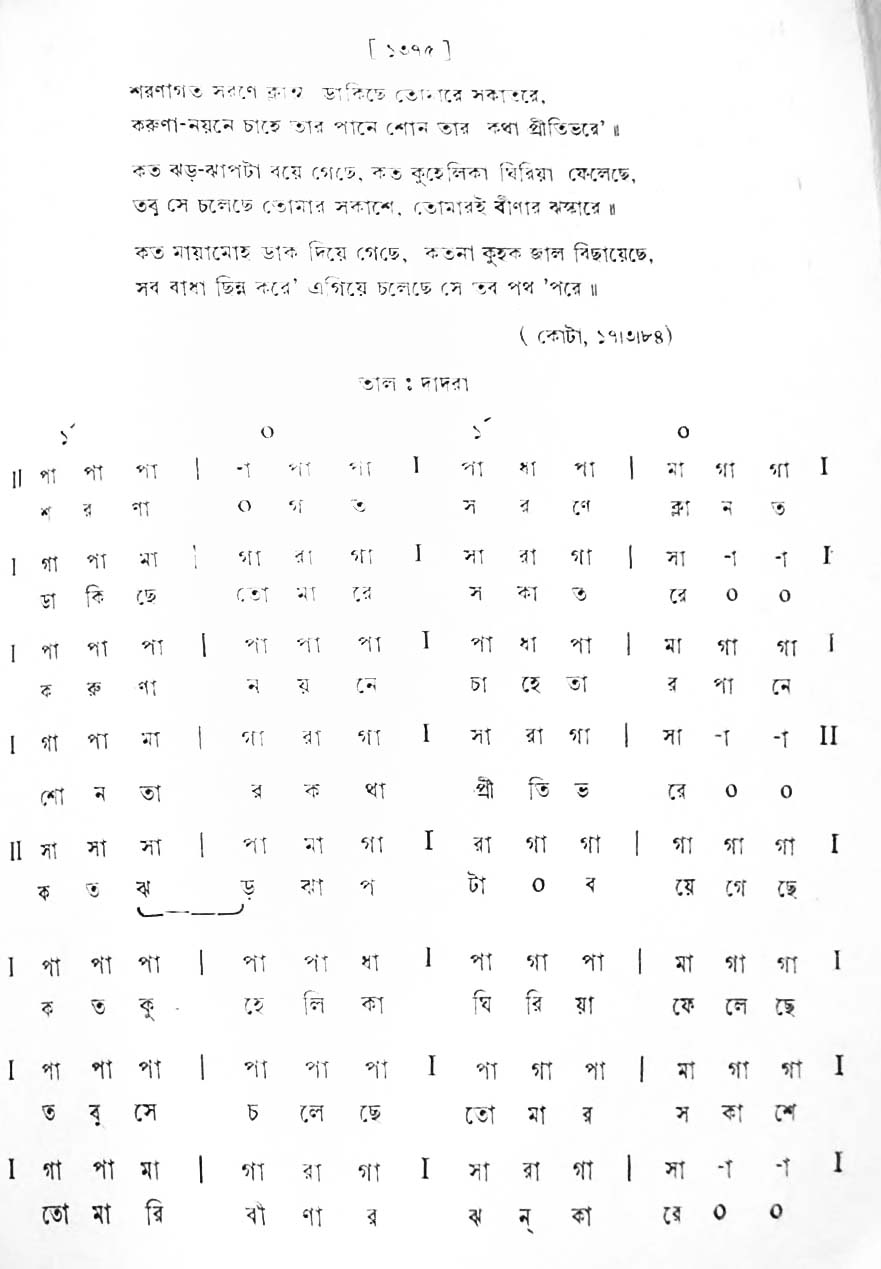 [ ১৩৭৫ ]
শরণাগত সরণে ক্লান্ত ডাকিছে তোমারে সকাতরে,
করুণা-নয়নে চাহে তার পানে শোন তার কথা প্রীতিভরে' ॥
কত ঝড়-ঝাপটা বয়ে গেছে, কত কুহেলিকা ঘিরিয়া ফেলেছে,
তবু সে চলেছে তোমার সকাশে, তোমারই বীণার ঝঙ্কারে ॥
কত মায়ামোহ ডাক দিয়ে গেছে, কতনা কুহক জাল বিছায়েছে,
সব বাধা ছিন্ন করে' এগিয়ে চলেছে সে তব পথ 'পরে ॥
( কোটা, ১৭।৩।৮৪)
তাল : দাদরা
১´ ০ ১´ ০
II পা পা পা | -া পা পা I পা ধা পা | মা গা গা I
শ র ণা ০ গ ত স র ণে ক্লা ন ত
I গা পা মা | গা রা গা I সা রা গা | সা -া -া I
ডা কি ছে তো মা রে স কা ত রে ০ ০
I পা পা পা | পা পা পা I পা ধা পা | মা গা গা I
ক রু ণা ন য় নে চা হে তা র পা নে
I গা পা মা | গা রা গা I সা রা গা | সা -া -া II
শো ন তা র ক থা প্রী তি ভ রে ০ ০
II সা সা সা | পা মা গা I রা গা গা | গা গা গা I
ক ত ঝ ড় ঝা প টা ০ ব য়ে গে ছে
I পা পা পা | পা পা ধা I পা গা পা | মা গা গা I
ক ত কু হে লি কা ঘি রি য়া ফে লে ছে
I পা পা পা | পা পা পা I পা গা পা | মা গা গা I
ত বু সে চ লে ছে তো মা র স কা শে
I গা পা মা | গা রা গা I সা রা গা | সা -া -া I
তো মা রি বী ণা র ঝ ন্ কা রে ০ ০